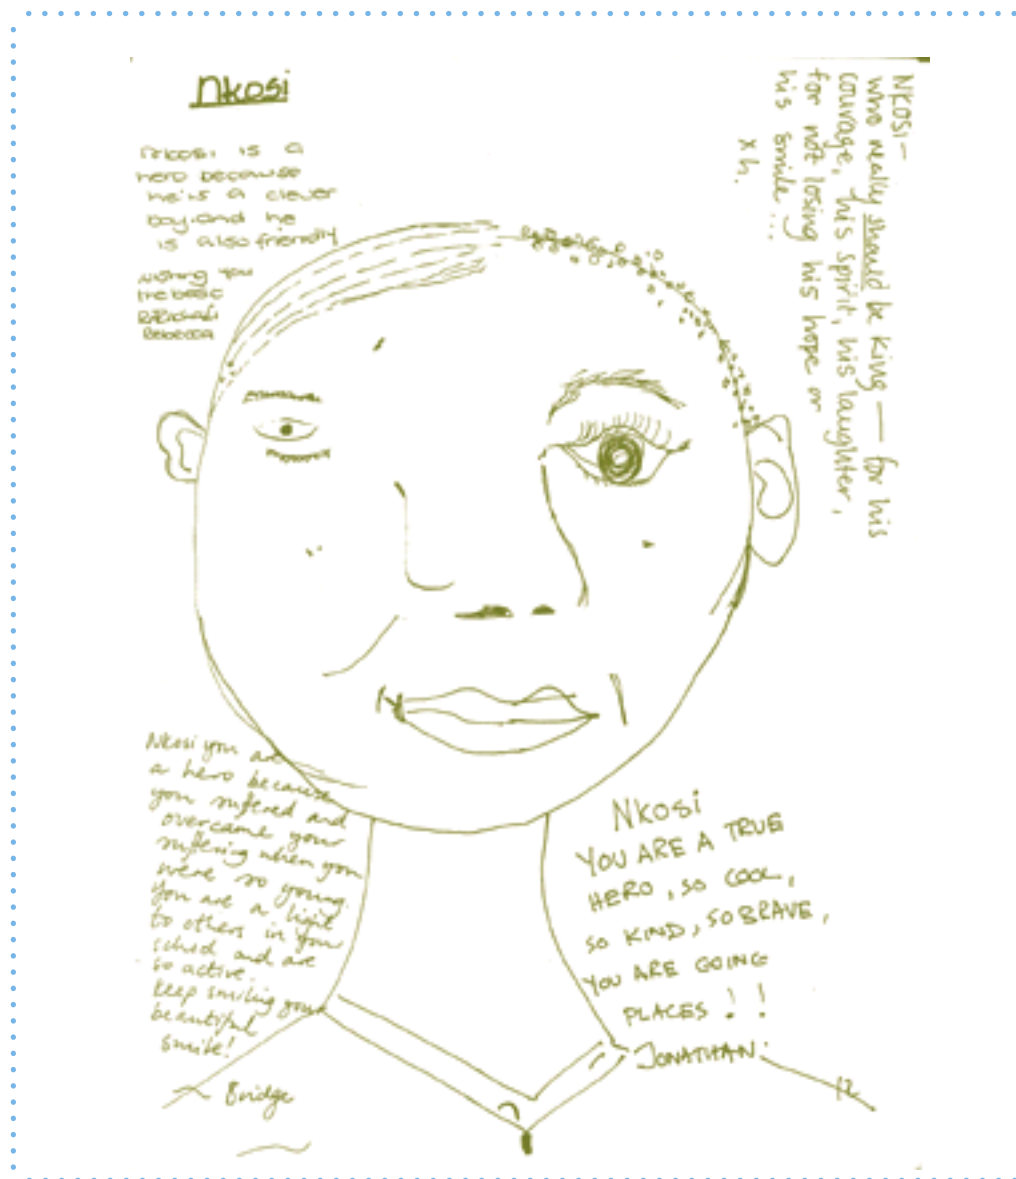 Nkosi
Nkosi is a
hero because
he is a clever
boy. and he
is also friendly
wishing you
the best
Rebecca
NKOSI—
who really should be King — for his
courage, his spirit, his laughter,
for not losing his hope or
his smile...
x h.
Nkosi you are
a hero because
you suffered and
overcame your
suffering when you
were so young.
You are a light
to others in your
school and are
so active.
Keep smiling your
beautiful
smile!
Bridge
NKOSi
YOU ARE A TRUE
HERO, SO COOL,
SO KIND, SO BRAVE,
YOU ARE GOING
PLACES!!
JONATHAN.